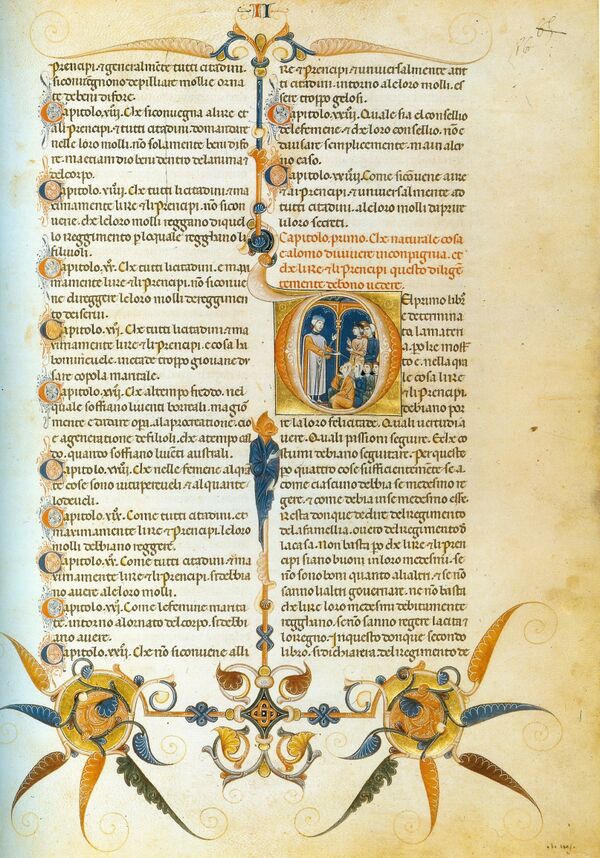 II
Principi, ⁊ generalmẽte tutti citadini.
si convengnono de pilliare mollie orna
te de beni di fore.
Capitolo. xiii. Che si convegna a li re et
a li Principi, ⁊ tutti citadini, domandare
nelle loro molli, non solamente beni di fo
re. ma etiamdio beni dentro de l anima ⁊
del corpo.
Capitolo. xiiii. Che tutti li citadini, ⁊ ma
ximamente li re ⁊ li Principi, no si con
vene. che le loro molli reggano di quel
lo reggimento per lo quale reggano li
filiuoli.
Capitolo. xv. Che tutti li citadini. ⁊ maxi
mamente li re ⁊ li Principi, no si convie
ne di reggere le loro molli de reggimen
to dei servi.
Capitolo. xvi. Che tutti li citadini ⁊ ma
ximamente li re ⁊ li Principi, e cosa la
bominevele. in etade troppo giovane du
sare copola maritale.
Capitolo. Che al tempo freddo. nel
quale soffiano li venti boreali. magior
mente e ditare opera a la procreatione. ⁊
a generatione de filioli. che a tempo cal
do. quanto soffiano li venti australi.
Capitolo. xviii. Che nelle femene alquan
te cose sono vituperevoli ⁊ alquante
lodevoli.
Capitolo. xix. Come tutti citadini. et
maximamente li re ⁊ li Principi le loro
molli debbiano reggere.
Capitolo. xx. Come tutti citadini, ⁊ ma
ximamente li re ⁊ li Principi. si debbia
no avere a le loro molli.
Capitolo. xxi. Come le femene marita
te. intorno a l ornato del corpo. si debbi
ano avere.
Capitolo. xxii. Che no si conviene alli
Re ⁊ Principi ⁊ universalmente a tut
ti citadini. intorno a le loro molli. es
sere troppo gelosi.
Capitolo. xxiii. Quale sia el consellio
de le femene. ⁊ che loro consellio. non e
da usare semplicemente. ma in alcu
no caso.
Capitolo. xxiiii. Come si convene a i re
⁊ a li Principi ⁊ universalmente a tut
ti citadini. a le loro molli d aprire
li loro secreti.
Capitolo primo. Che naturale cosa
e a l omo di vivere in conpignia. et
che li re ⁊ li Principi questo diligen
temente debono vedere.
El primo libro
e determina
ta la matern
a. po lie mostr
ato. e nella qua
le cosa li re
⁊ Principi
debbiano por
re la loro felicitade. Quali vertudi a
vere. Quali passioni seguire. E che co
stumi debiano seguitare. Per queste
po quattro cose sufficientemente se a.
come ciascuno debbia se medesimo re
gere. ⁊ come debia in se medesimo essere.
Resta donque de dire del regimento
de la famellia. overo del regimento d
la casa. non basta po che li re ⁊ li Prin
cipi siano buoni in loro medesmi. se
no sono boni quanto a li altri. ⁊ se no
sanno li altri governare. ne no basta
che li re loro medesmi debitamente
regghano. se no sanno regere la cita ⁊
lo regno. In questo donque secondo
libro. si dichiarera del regimento de